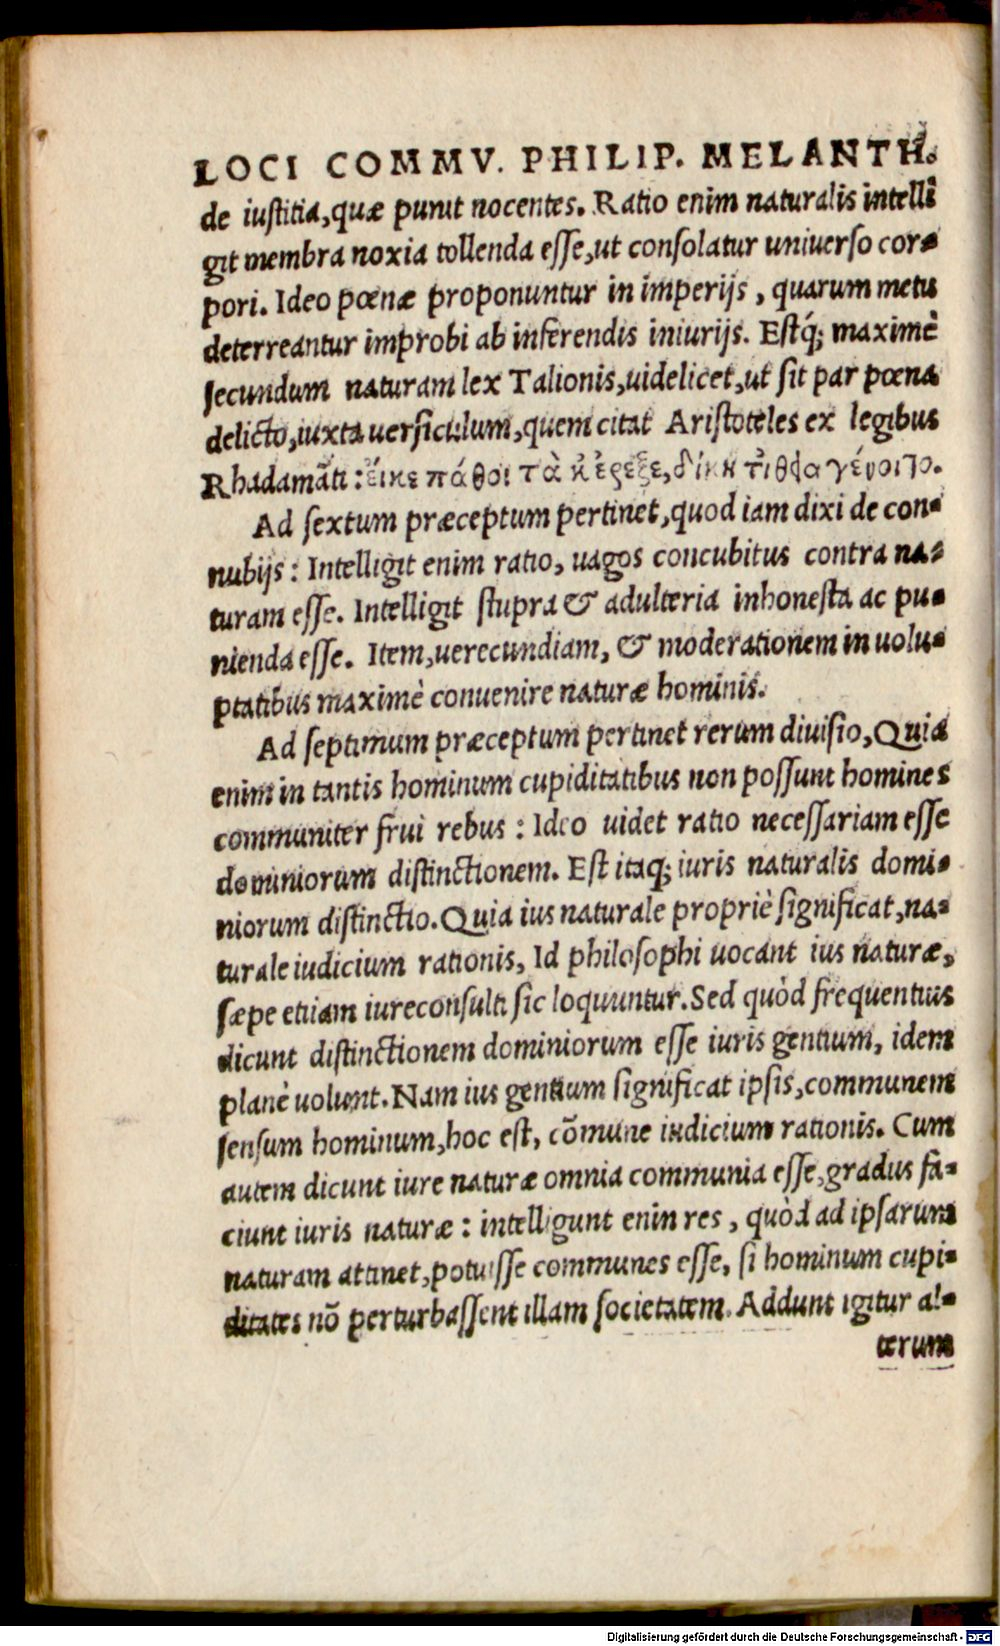 LOCI COMMV. PHILIP. MELANTH.
de iustitia, quæ punit nocentes. Ratio enim naturalis intelli
git membra noxia tollenda esse, ut consolatur universo cor-
pori. Ideo pœnæ proponuntur in imperijs, quarum metu
deterreantur improbi ab inferendis iniurijs. Estq́; maximè
secundum naturam lex Talionis, uidelicet, ut sit par pœna
delicto, iuxta uersiculum, quem citat Aristoteles ex legibus
Rhadamāti: εἴκε πάθοι τὰ κ' ἔρεξε, δίκη τ' ἰθεῖα γένοιτο.
Ad sextum præceptum pertinet, quod iam dixi de con-
nubijs: Intelligit enim ratio, uagos concubitus contra na-
turam esse. Intelligit stupra & adulteria inhonesta ac pu-
nienda esse. Item, uerecundiam, & moderationem in uolu-
ptatibus maximè conuenire naturæ hominis.
Ad septimum præceptum pertinet rerum diuisio, Quia
enim in tantis hominum cupiditatibus non possunt homines
communiter frui rebus: Ideo uidet ratio necessariam esse
dominiorum distinctionem. Est itaq; iuris naturalis domi-
niorum distinctio. Quia ius naturale propriè significat, na-
turale iudicium rationis, Id philosophi uocant ius naturæ,
sæpe etiam iureconsulti sic loquuntur. Sed quòd frequentius
dicunt distinctionem dominiorum esse iuris gentium, idem
planè uolunt. Nam ius gentium significat ipsis, communem
sensum hominum, hoc est, cōmune iudicium rationis. Cum
autem dicunt iure naturæ omnia communia esse, gradus fa-
ciunt iuris naturæ: intelligunt enin res, quòd ad ipsarum
naturam attinet, potuisse communes esse, si hominum cupi-
ditates nō perturbassent illam societatem. Addunt igitur al-
terum
Digitalisierung gefördert durch die Deutsche Forschungsgemeinschaft - DFG